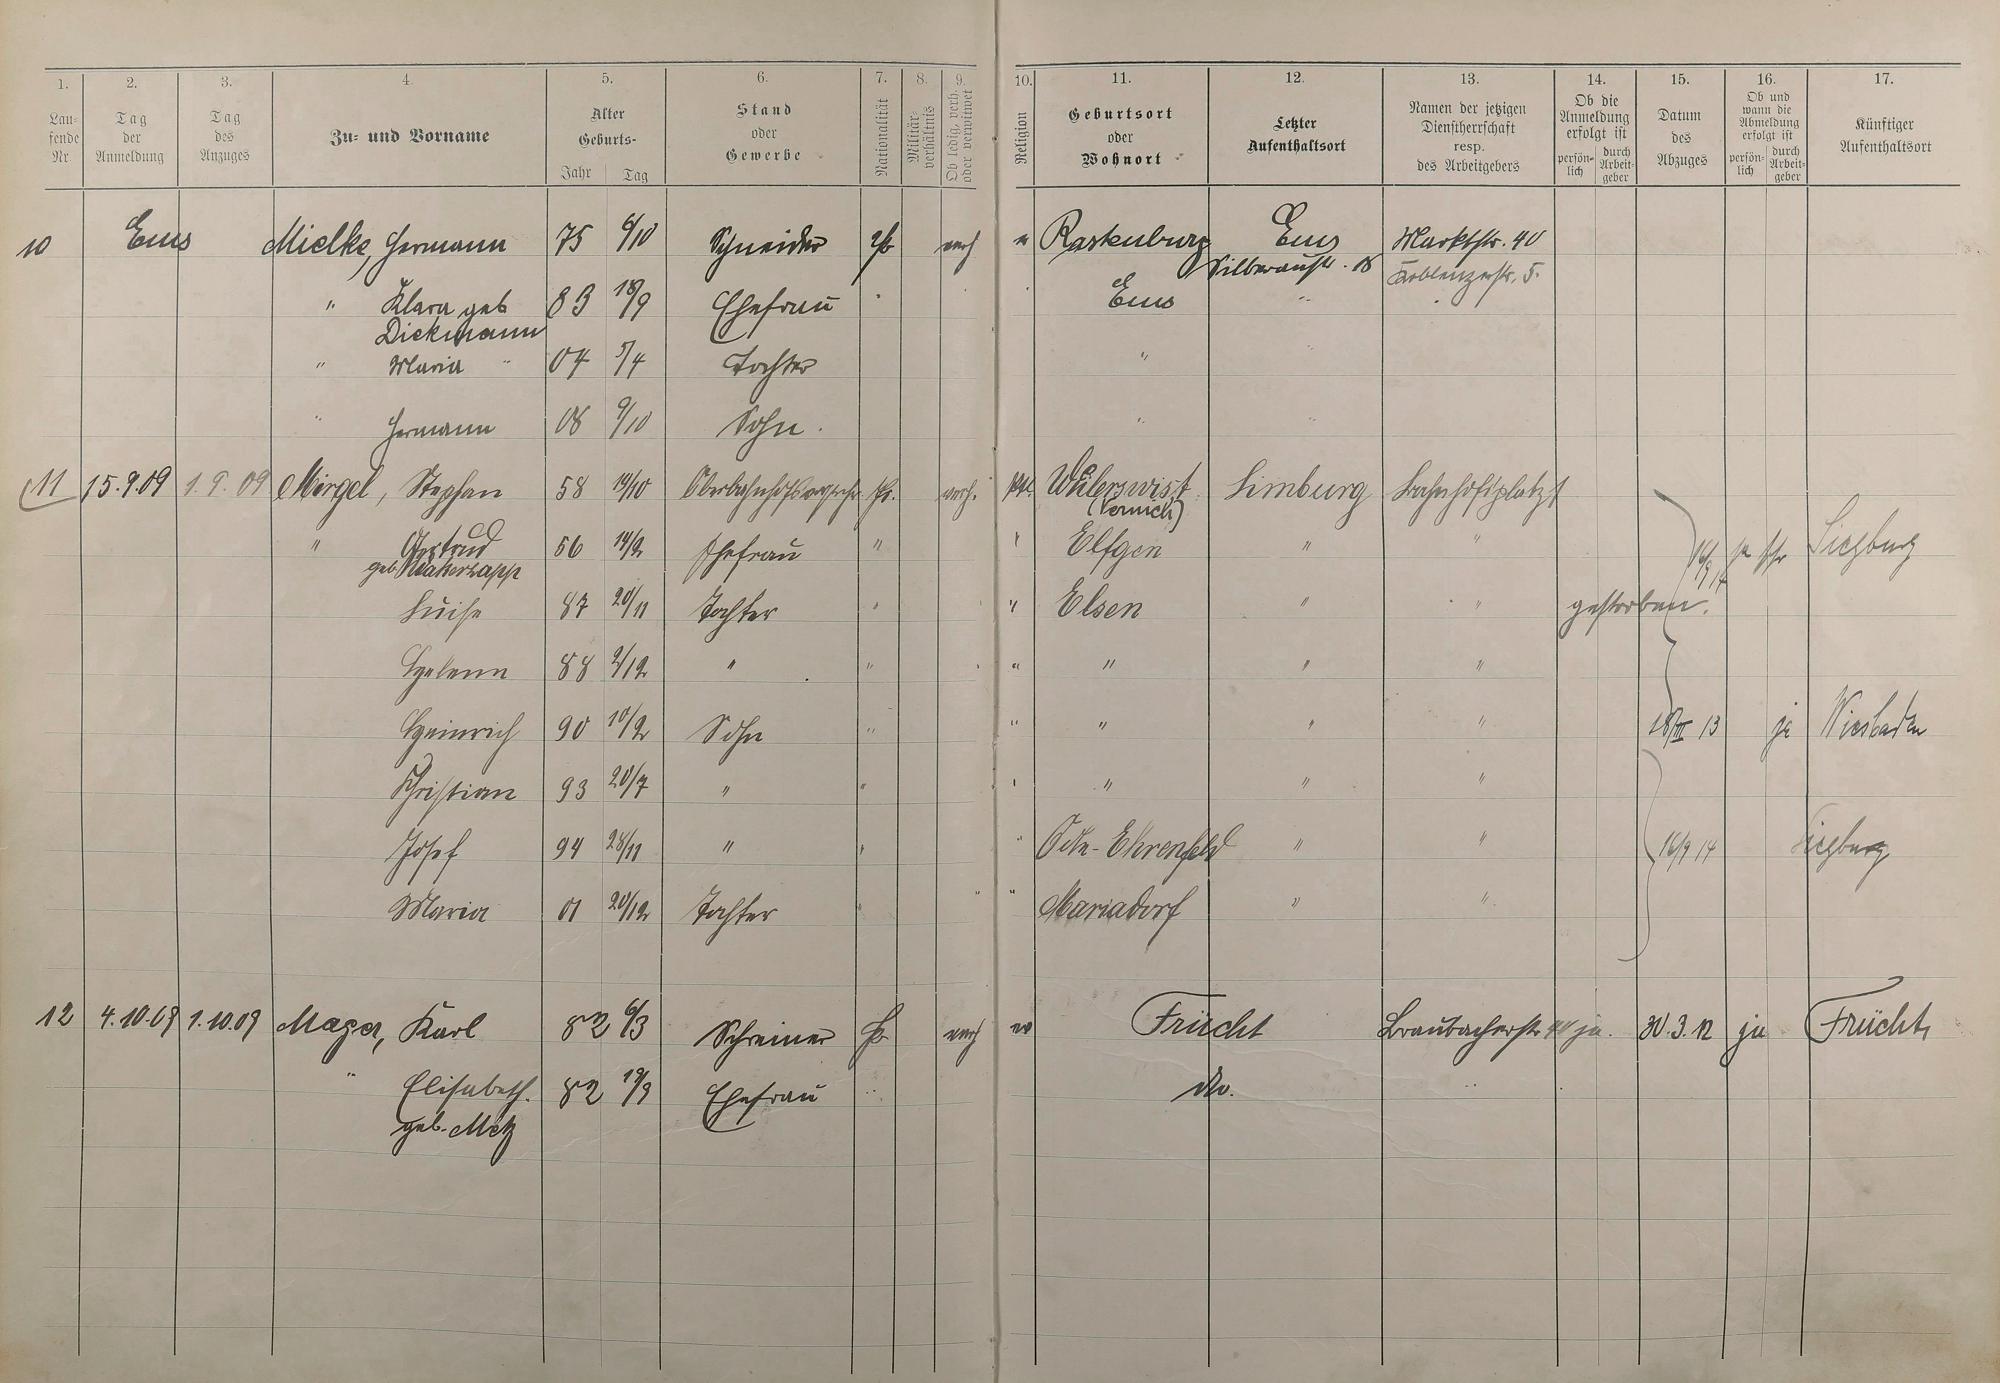 1. 2. 3. 4. 5. 6. 7. 8. 9. 10. 11. 12. 13. 14. 15. 16. 17.
Lau-
fende
Nr.
Tag
der
Anmeldung
Tag
des
Anzuges
Zu- und Vorname
Alter
Geburts-
Jahr Tag
Stand
oder
Gewerbe
Nationalität
Militär-
verhältnis
Ob ledig, verh.
oder verwitwet
Religion
Geburtsort
oder
Wohnort
Letzter
Aufenthaltsort
Namen der jetzigen
Dienstherrschaft
resp.
des Arbeitgebers
Ob die
Anmeldung
erfolgt ist
persön-
lich
durch
Arbeit-
geber
Datum
des
Abzuges
Ob und
wann die
Abmeldung
erfolgt ist
persön-
lich
durch
Arbeit-
geber
Künftiger
Aufenthaltsort
10 Ems Mielke, Hermann 75 6/10 Schneider Pr verh Rastenburg Ems Marktstr. 40
Silberaustr. 18 Koblenzerstr. 5.
" Klara geb 83 18/9 Ehefrau " Ems "
Dickmann
" Maria " 04 5/4 Tochter "
" Hermann 08 9/10 Sohn. "
11 15.9.09 1.9.09 Mirgel, Stephan 58 19/10 Pr. verh. kath. Weilerswist Limburg Bahnhofsplatz 1
(Vernich)
" Gertrud 56 14/2 Ehefrau " " Elfgen " " 16/9 14 ja Siegburg
geb.
Luise 87 20/11 Tochter " " Elsen " " gestorben.
Helene 88 2/12 " " " " " "
Heinrich 90 10/2 Sohn " " " " " 18/III 13 ja Wiesbaden
Christian 93 20/7 " " " " " "
Josef 94 28/11 " " " Cöln-Ehrenfeld " " 16/9 14 Siegburg
Maria 01 20/12 Tochter " " " Mariadorf " "
12 4.10.09 1.10.09 Mager, Karl 82 6/3 Schreiner Pr verh ev Frücht Braubacherstr 40 ja. 30.3.12 ja Frücht
" Elisabeth. 82 19/9 Ehefrau " do. "
geb. Metz